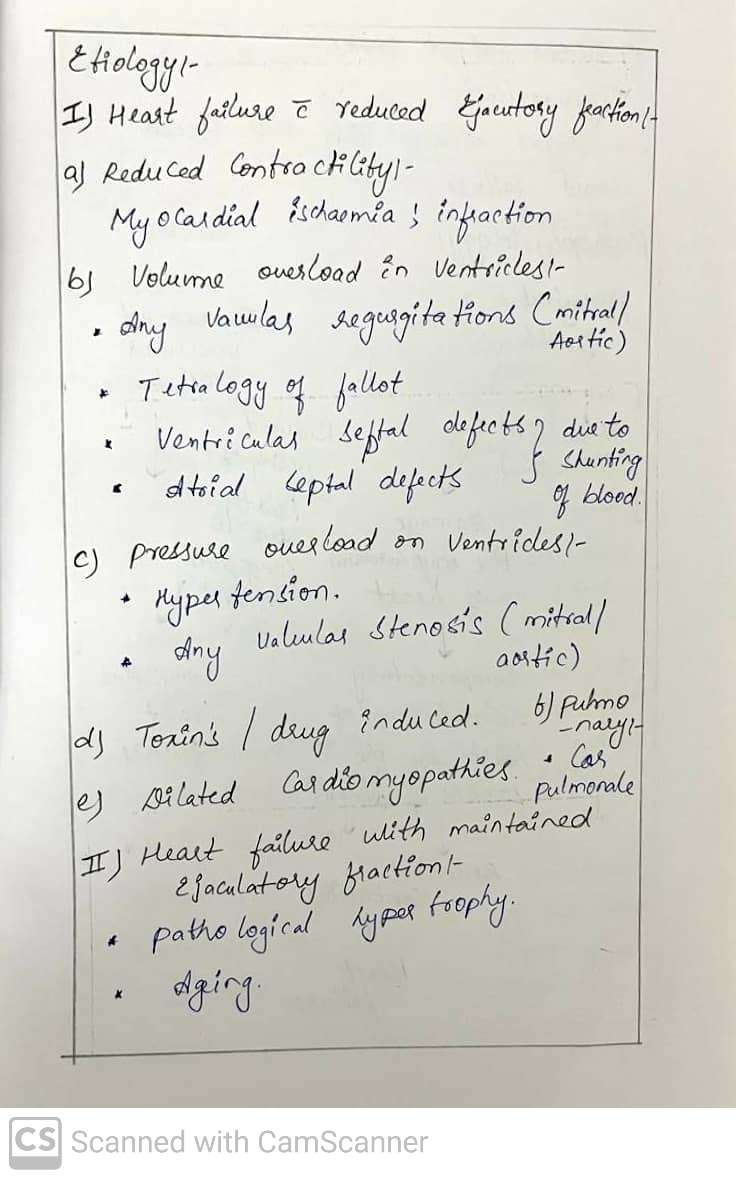 Etiology:-
I) Heart failure c̄ reduced Ejacutory fraction:-
a) Reduced Contractility:-
Myocardial ischaemia ; infraction
b) Volume overload in Ventricles:-
• Any Vavular regurgitations (mitral/
Aortic)
* Tetralogy of fallot
* Ventricular Septal defects } due to
* Atrial septal defects shunting
of blood.
c) Pressure overload on Ventricles:-
• Hypertension.
* Any Valvular Stenosis (mitral/
aortic)
d) Toxin's / drug induced.
e) Dilated Cardiomyopathies.
f) Pulmo
-nary:-
• Cor
pulmonale
II) Heart failure with maintained
Ejaculatory fraction:-
* pathological hypertrophy.
* Aging.
CS Scanned with CamScanner